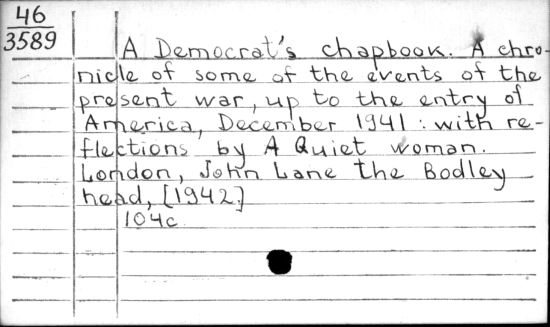 46
3589
A Democrat's chapbook. A chro-
nicle of some of the events of the
present war, up to the entry of
America, December 1941 : with re-
flections by A Quiet woman.
London, John Lane the Bodley
head, [1942.]
104c.